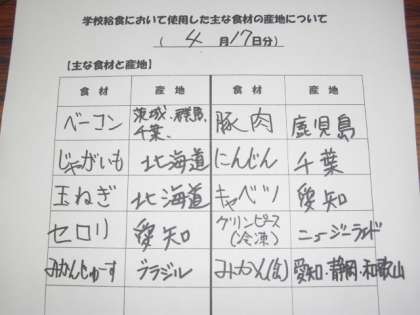 学校給食において使用した主な食材の産地について
( 4 月17日分)
【主な食材と産地】
食材 産地 食材 産地
ベーコン 茨城、群馬、千葉、 豚肉 鹿児島
じゃがいも 北海道 にんじん 千葉
玉ねぎ 北海道 キャベツ 愛知
セロリ 愛知 グリンピース(冷凍) ニュージーランド
みかんじゅーす ブラジル みかん(缶) 愛知・静岡・和歌山